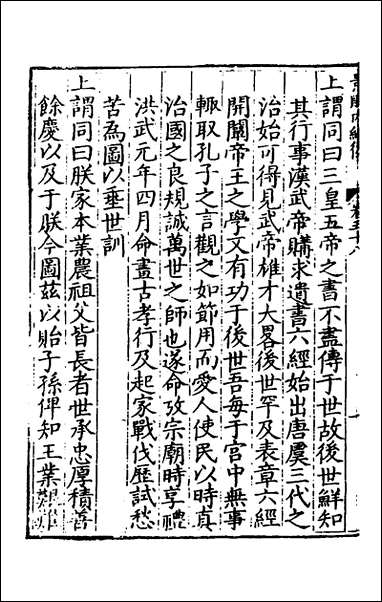 上謂同曰三皇五帝之書不盡傳于世故後世鮮知
其行事漢武帝購求遺書六經始出唐虞三代之
治始可得見武帝雄才大畧後世罕及表章六經
開闡帝王之學又有功于後世吾每于宫中無事
輙取孔子之言觀之如節用而愛人使民以時真
治國之良規誠萬世之師也遂命攷宗廟時享禮
洪武元年四月命畫古孝行及起家戰伐歷試愁
苦為圖以垂世訓
上謂同曰朕家本業農祖父皆長者世承忠厚積善
餘慶以及于朕今圖茲以貽子孫俾知王業艱難